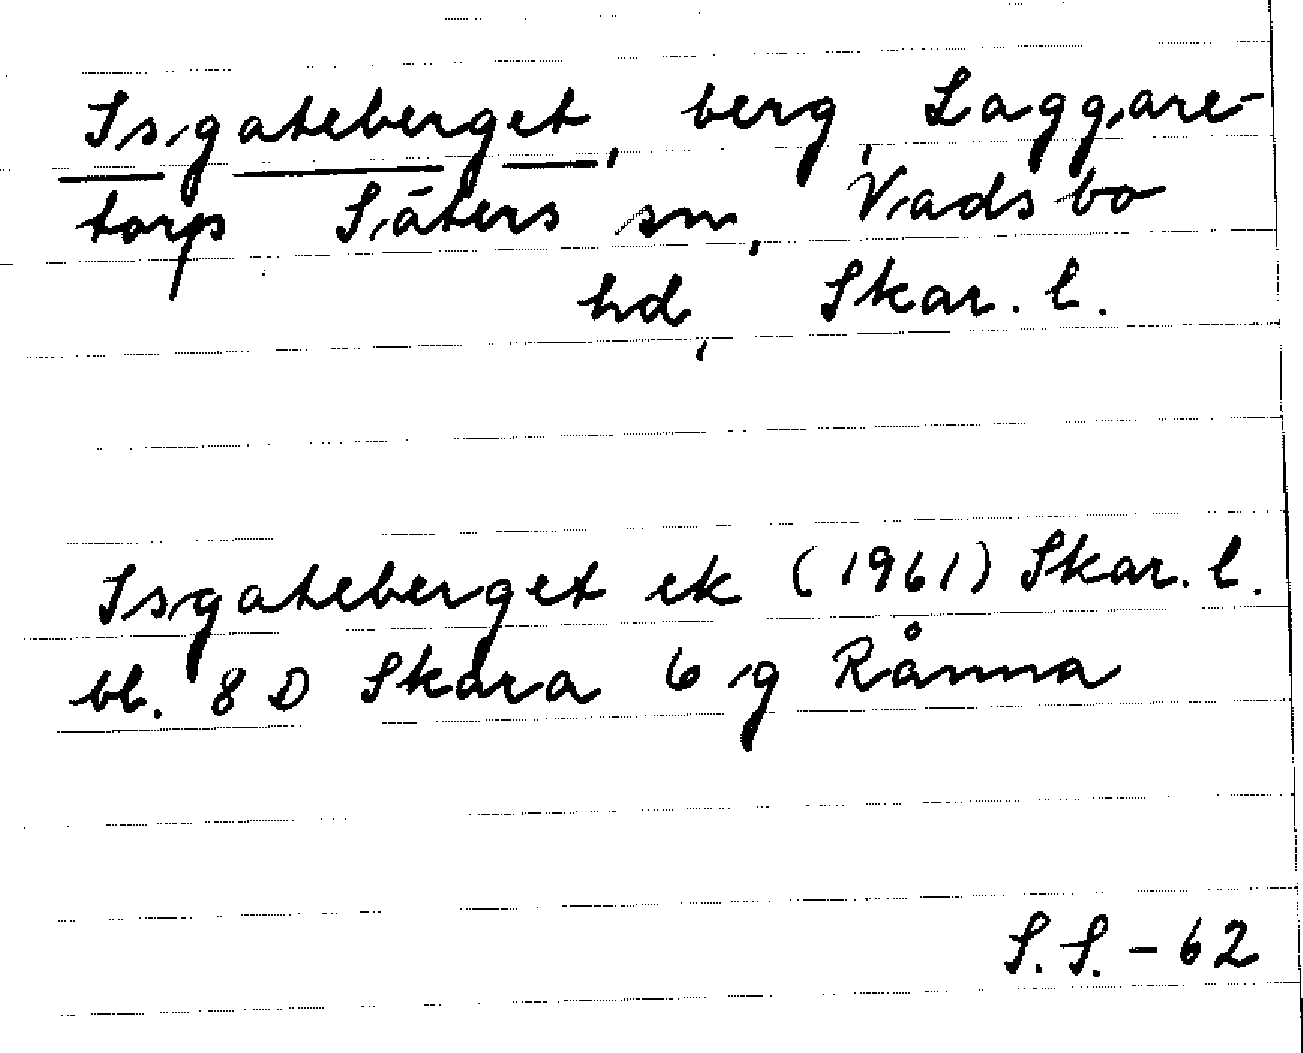 Isgateberget, berg, Laggare-
torp Säters sn, Vadsbo
hd, Skar. l.
Isgateberget ek (1961) Skar. l.
bl. 8 D Skara 6 g Rånna
S. S. - 62